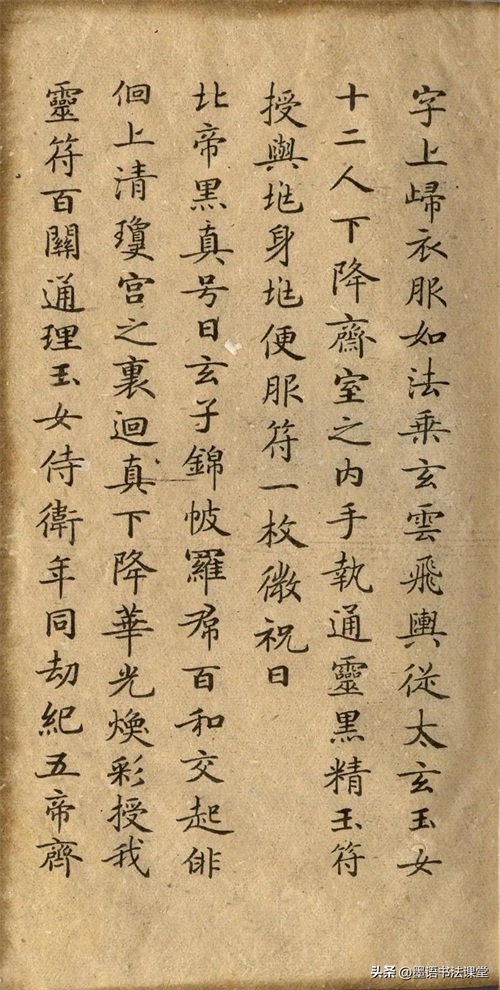 字上㱕衣服如法乗玄雲飛輿従太玄玉女
十二人下降齋室之内手執通靈黑精玉符
授與兆身兆便服符一枚微祝曰
北帝黑真号曰玄子錦帔羅帬百和交起俳
佪上清瓊宮之裏迴真下降華光煥彩授我
靈符百關通理玉女侍衛年同劫紀五帝齊
头条 @墨语书法课堂